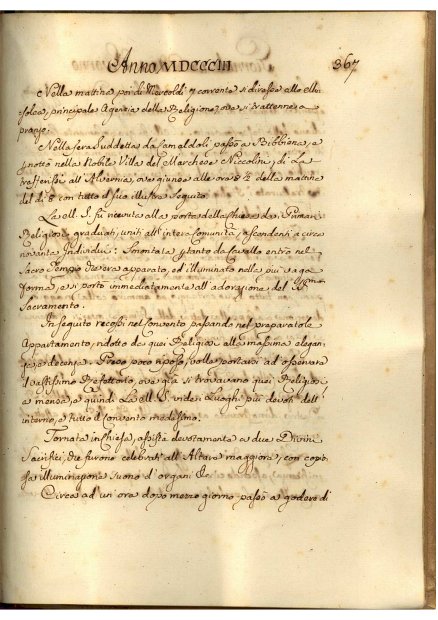 Anno MDCCCIII
367
Nella mattina poi di Mercoldi 7 corrente si diresse alle
principale Agenzia della Religione, ove si trattenne a
pranzo.
Nella sera suddetta da Camaldoli passò a Bibbiena, e
pnottò nella Nobile Villa del Marchese Niccolini, di là
trasferissi all'Alvernia, ove giunse alle ore 8 ½ della mattina
del dì 8 con tutto il suo illustre Seguito.
La M. S. fu ricevuta alla porta della Chiesa da i Primari
Religiosi graduati, uniti all'intera Comunità, ascendenti a circa
novanta Individui: Smontata pertanto da Cavallo entrò nel
Sacro Tempio che era apparato, ed illuminato nella più vaga
forma, e si portò immediatamente all'adorazione del SS.mo
Sacramento.
In seguito recossi nel Convento passando nel preparatole
Appartamento, ridotto da quei Religiosi alla massima elegan-
za, e decenza. Preso poco riposo, volle portarsi ad osservare
il vastissimo Refettorio, ove già si trovavano quei Religiosi
a mensa, e quindi La M. S. vide i Luoghi più devoti dell'
interno, e tutto il Convento medesimo.
Tornata in Chiesa, assistè devotamente a due Divini
Sacrifizi, che furono celebrati all'Altare maggiore, con copio-
sa illuminazione, suono d'organi &c:
Circa ad un'ora dopo mezzo giorno passò a godere di